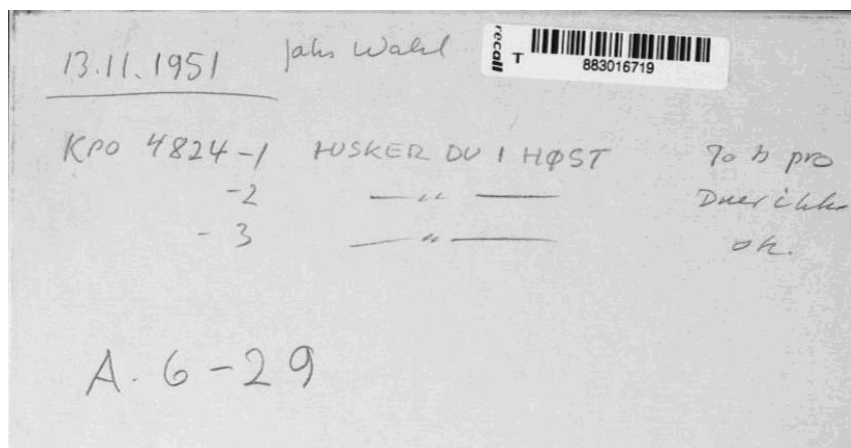 13.11.1951
recall T
883016719
KPO 4824-1 HUSKER DU I HØST To b pro
-2 — " — Duer ikke
- 3 — " — ok.
A. 6-29